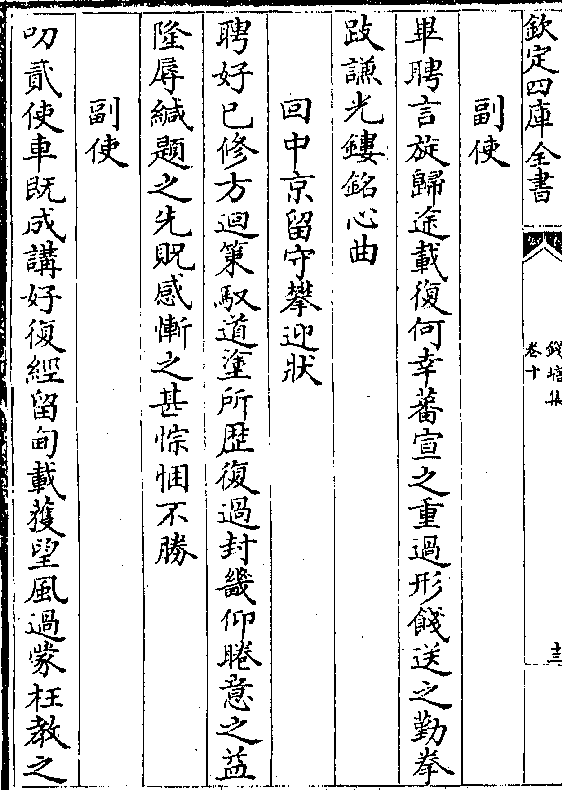 欽定四庫全書
錢塘集
卷十
十三
副使
畢聘言旋歸途載復何幸蕃宣之重過形餞送之勤拳
跂謙光鏤銘心曲
回中京留守攀迎狀
聘好已修方迴策馭道塗所歴復過封畿仰睠意之益
隆辱緘題之先貺感慚之甚悰悃不勝
副使
叨貳使車既成講好復經留甸載獲望風過蒙枉教之